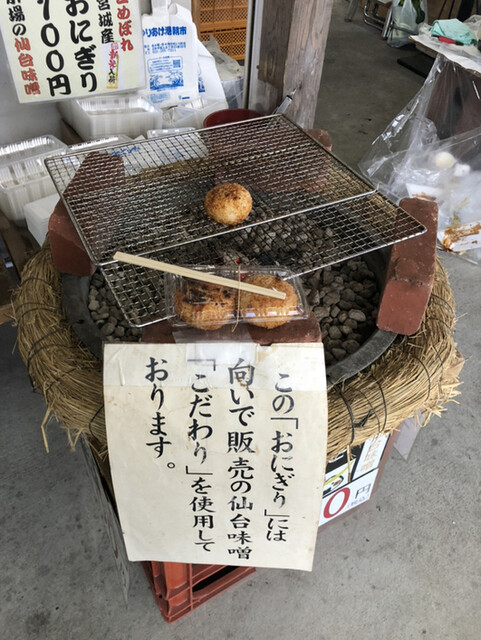 宮城産
おにぎり
100円
仙台味噌
この「おにぎり」には
向いで販売の仙台味噌
「こだわり」を使用して
おります。
0円